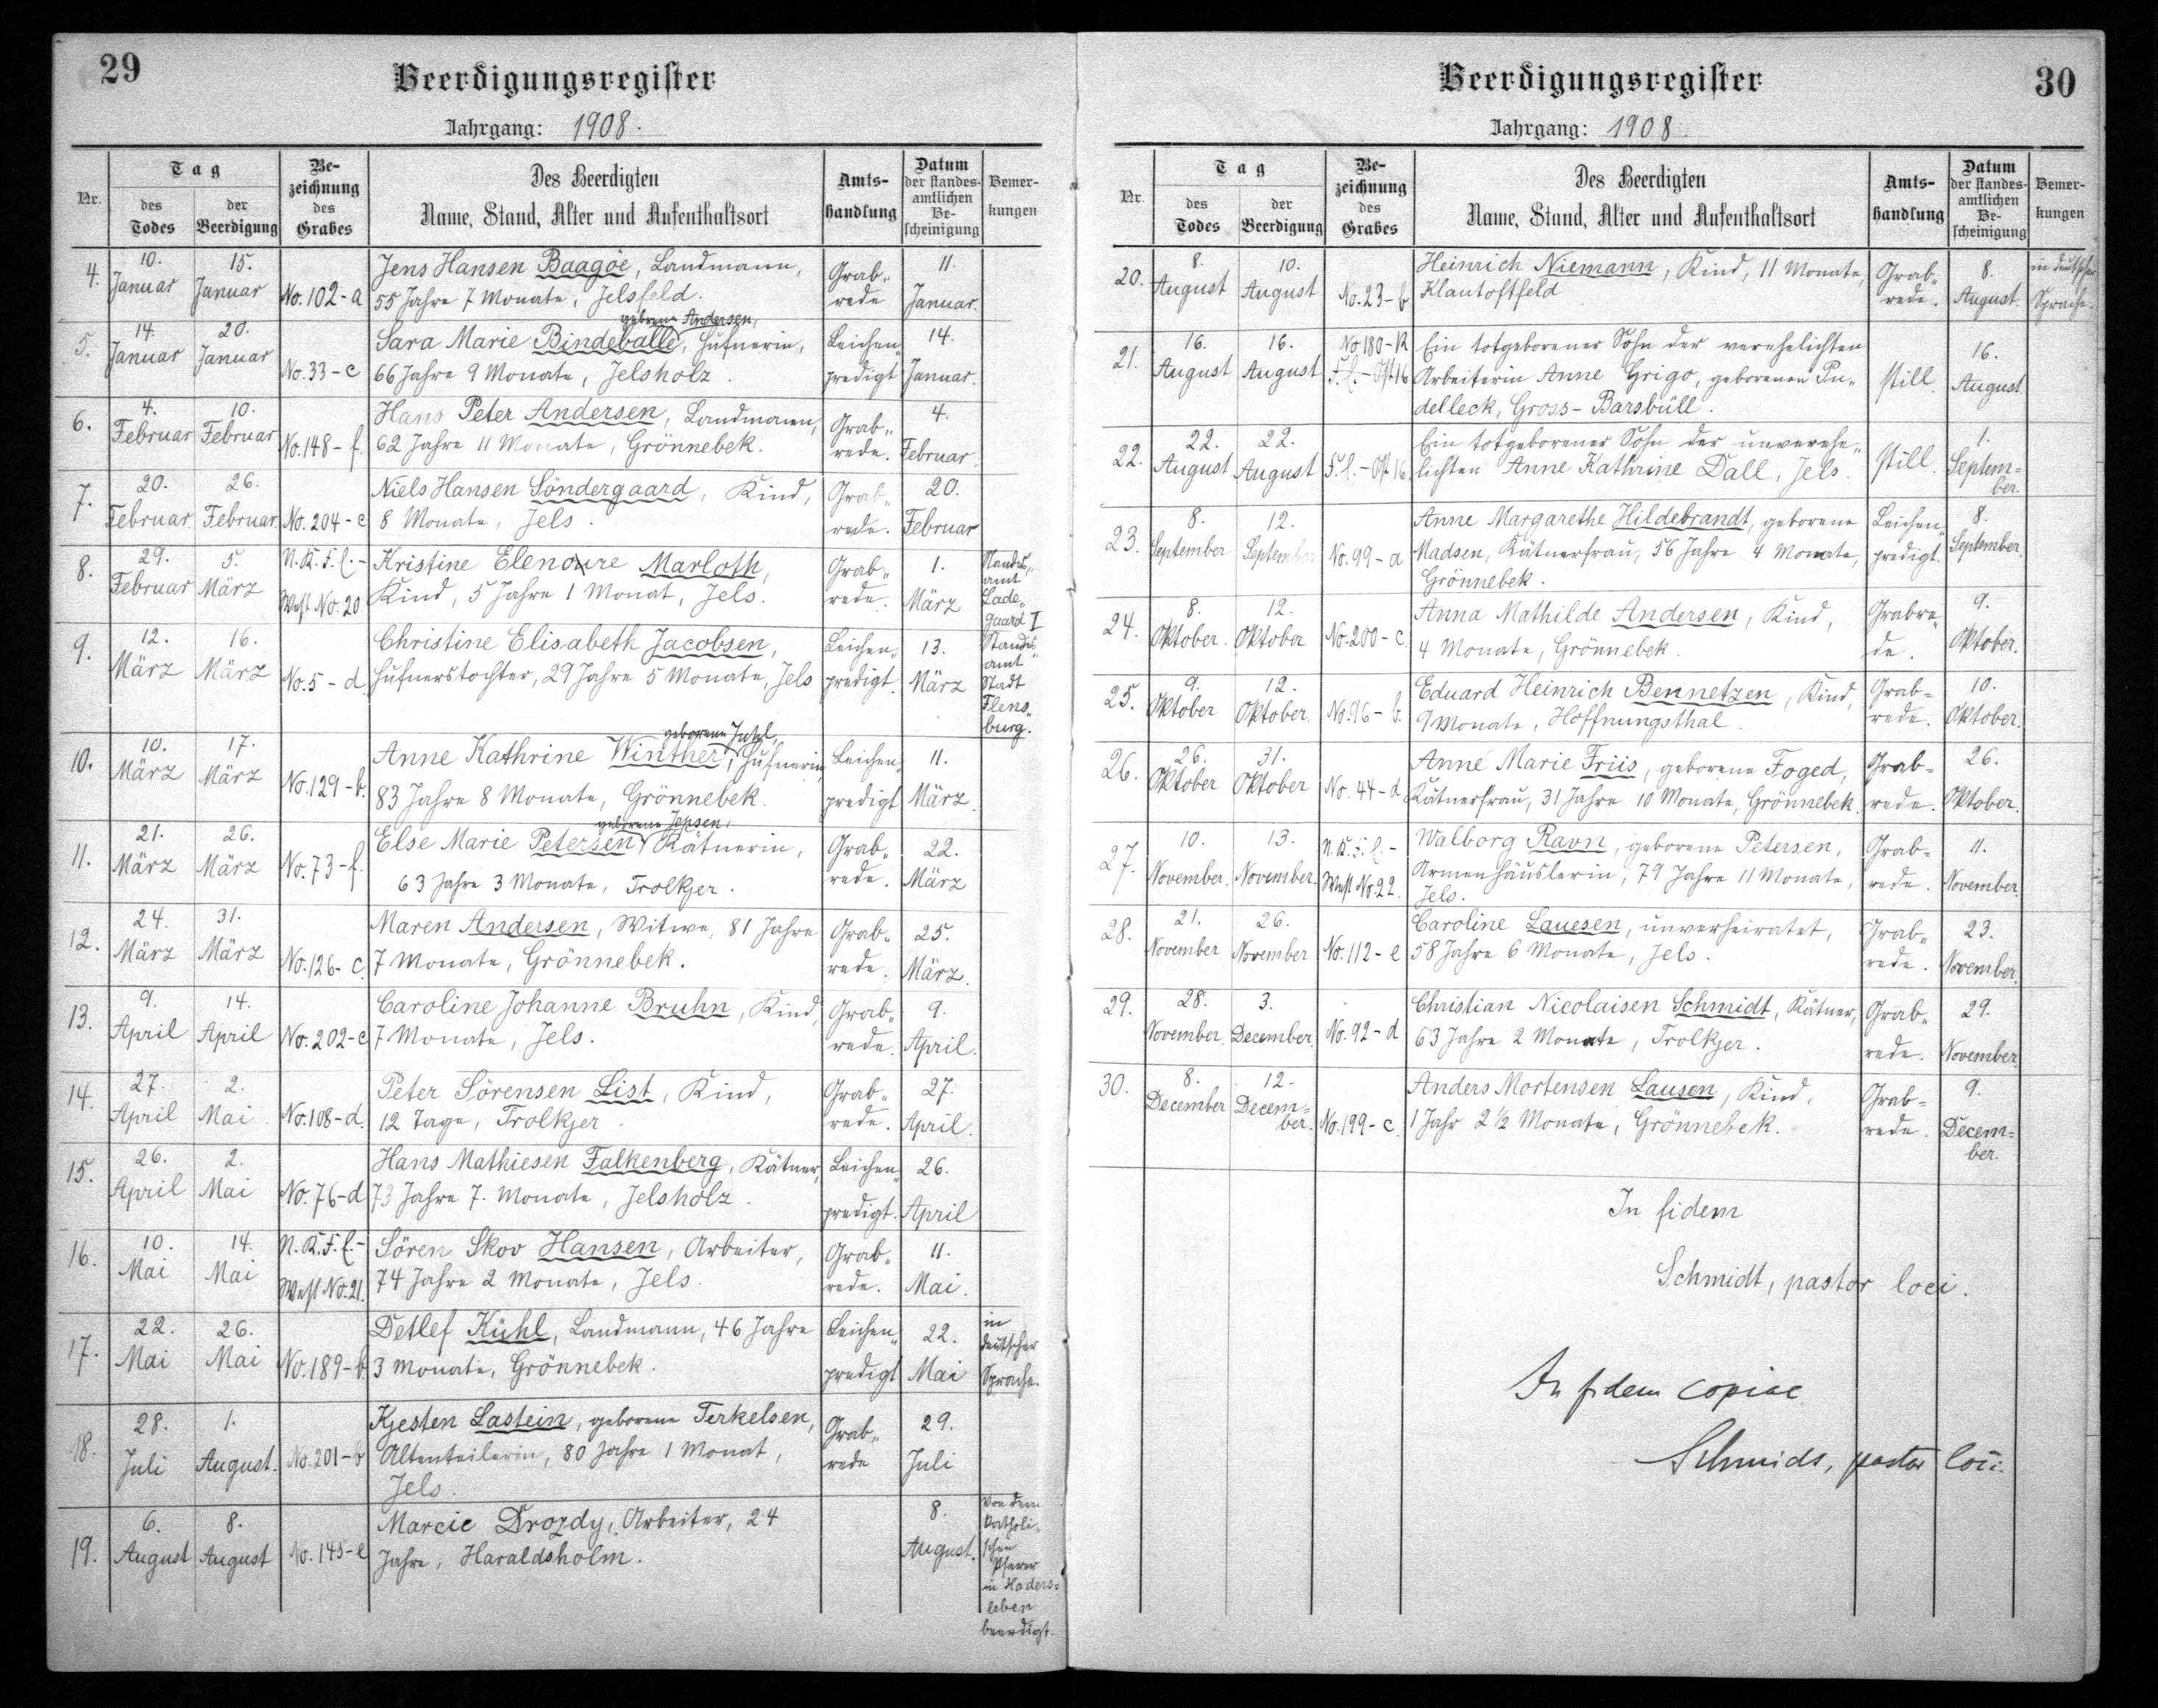 29
Beerdigungsregister
Jahrgang: 1908.
Nr.
Tag
des Todes
der Beerdigung
Bezeichnung des Grabes
Des Beerdigten
Name, Stand, Alter und Aufenthaltsort
Amtshandlung
Datum der standesamtlichen Bescheinigung
Bemerkungen
4. 10. Januar 15. Januar No. 102-a Jens Hansen Baagöe, Landmann, Grab„ 11.
55 Jahre 7 Monate, Jelsfeld. rede Januar.
geborene Andersen,
5. 14. Januar 20. Januar No. 33-c Sara Marie Bindeballe, Hufnerin, Leichen„ 14.
66 Jahre 9 Monate, Jelsholz. predigt Januar.
6. 4. Februar 10. Februar No. 148-f. Hans Peter Andersen, Landmann, Grab„ 4.
62 Jahre 11 Monate, Grönnebek. rede. Februar.
7. 20. Februar. 26. Februar. No. 204-c Niels Hansen Söndergaard, Kind, Grab„ 20.
8 Monate, Jels. rede. Februar
8. 29. Februar 5. März N. K. F. l.- West No. 20 Kristine Elenore Marloth, Grab„ 1. Standes„
Kind, 5 Jahre 1 Monat, Jels. rede. März amt Lade„gaard I
9. 12. März 16. März No. 5-d. Christine Elisabeth Jacobsen, Leichen„ 13. Standes„
Hufnerstochter, 29 Jahre 5 Monate, Jels predigt. März amt Stadt Flens„burg.
geborene
10. 10. März 17. März No. 129-b. Anne Kathrine Winther, Hufnerin Leichen„ 11.
83 Jahre 8 Monate, Grönnebek. predigt März.
geborene Jepsen,
11. 21. März 26. März No. 73-f. Else Marie Petersen, Kätnerin, Grab„ 22.
63 Jahre 3 Monate, Trolkjer. rede. März
12. 24. März 31. März No. 126-c. Maren Andersen, Witwe, 81 Jahre Grab„ 25.
7 Monate, Grönnebek. rede. März.
13. 9. April 14. April No. 202-c Caroline Johanne Bruhn, Kind, Grab„ 9.
7 Monate, Jels. rede. April.
14. 27. April 2. Mai No. 108-d. Peter Sörensen List, Kind, Grab„ 27.
12 Tage, Trolkjer rede. April.
15. 26. April 2. Mai No. 76-d Hans Mathiesen Falkenberg, Kätner, Leichen„ 26.
73 Jahre 7. Monate, Jelsholz. predigt. April
16. 10. Mai 14. Mai N. K. F. l.- West No. 21. Sören Skov Hansen, Arbeiter, Grab„ 11.
74 Jahre 2 Monate, Jels. rede. Mai.
17. 22. Mai 26. Mai No. 189-b Detlef Kühl, Landmann, 46 Jahre Leichen„ 22. in deutscher
3 Monate, Grönnebek. predigt Mai Sprache.
18. 28. Juli 1. August. No. 201-b Kjesten Lastein, geborene Terkelsen, Grab„ 29.
Altenteilerin, 80 Jahre 1 Monat, rede Juli
Jels.
19. 6. August 8. August No. 145-e Marcie Drozdy, Arbeiter, 24 8. Von dem katholi„
Jahre, Haraldsholm. August. schen Pfarrer in Haders=leben beerdigt.
30
Beerdigungsregister
Jahrgang: 1908.
Nr.
Tag
des Todes
der Beerdigung
Bezeichnung des Grabes
Des Beerdigten
Name, Stand, Alter und Aufenthaltsort
Amtshandlung
Datum der standesamtlichen Bescheinigung
Bemerkungen
20. 8. August 10. August No. 23-b Heinrich Niemann, Kind, 11 Monate, Grab„ 8. in deutscher
Klantoftfeld rede. August. Sprache.
21. 16. August 16. August No 180-R F. l.-Ost 16 Ein totgeborener Sohn der verehelichten
Arbeiterin Anne Grigo, geborenen Pu„ still. 16. August
delleck, Gross-Barsbüll.
22. 22. August 22. August F. l.-Ost 16. Ein totgeborener Sohn der unverehe„ still. 1. Septem=
lichten Anne Kathrine Dall, Jels. ber.
23. 8. September 12. September No. 99-a Anne Margarethe Hildebrandt, geborene Leichen„ 8.
Madsen, Kätnerfrau, 56 Jahre 4 Monate, predigt. September.
Grönnebek.
24. 8. Oktober. 12. Oktober No. 200-c. Anna Mathilde Andersen, Kind, Grabre„ 9.
4 Monate, Grönnebek. de. Oktober.
25. 9. Oktober 12. Oktober. No. 96-b. Eduard Heinrich Bennetzen, Kind, Grab= 10.
9 Monate, Hoffnungsthal. rede. Oktober.
26. 26. Oktober 31. Oktober No. 44-d Anne Marie Friis, geborene Foged, Grab= 26.
Kätnerfrau, 31 Jahre 10 Monate, Grönnebek. rede. Oktober.
27. 10. November. 13. November. N. K. F. l.- West No. 22. Walborg Ravn, geborene Petersen, Grab= 11.
Armenhäuslerin, 79 Jahre 11 Monate, rede. November.
Jels.
28. 21. November 26. November No. 112-e Caroline Lauesen, unverheiratet, Grab„ 23.
58 Jahre 6 Monate, Jels. rede. November.
29. 28. November. 3. December. No. 92-d Christian Nicolaisen Schmidt, Kätner, Grab„ 29.
63 Jahre 2 Monate, Trolkjer. rede. November
30. 8. December 12. Decem=ber. No. 199-c. Anders Mortensen Lausen, Kind, Grab= 9.
1 Jahr 2 ½ Monate, Grönnebek. rede. Decem=ber.
In fidem
Schmidt, pastor loci.
In fidem copiae
Schmidt, pastor loci.